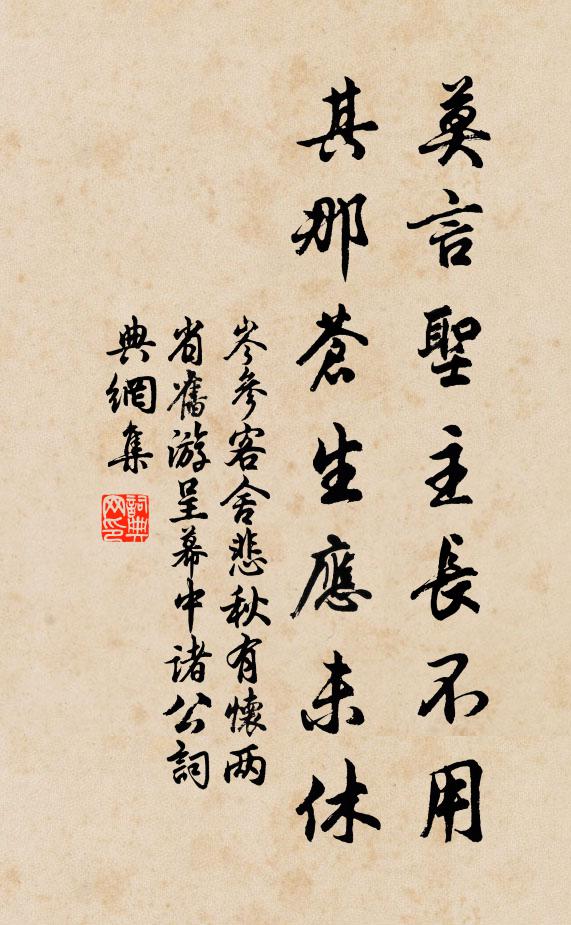 莫言聖主長不用
其那蒼生應未休
岑參客舍悲秋有懷两
省舊游呈幕中諸公詞
典網集
詞典网印